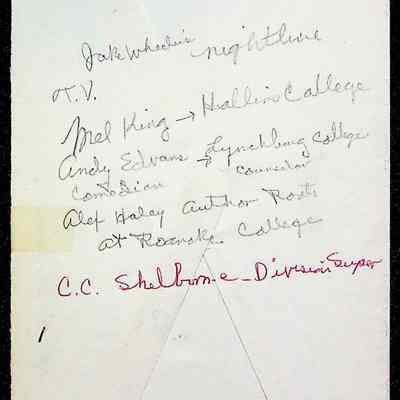 Jake Wheeler's nightline
T.V.
Mel King → Hollins College
Andy Edvans → Lynchburg College
Comodian counselor
Alex Haley Author Roots
at Roanoke College
C.C. Shelburne - Division Super